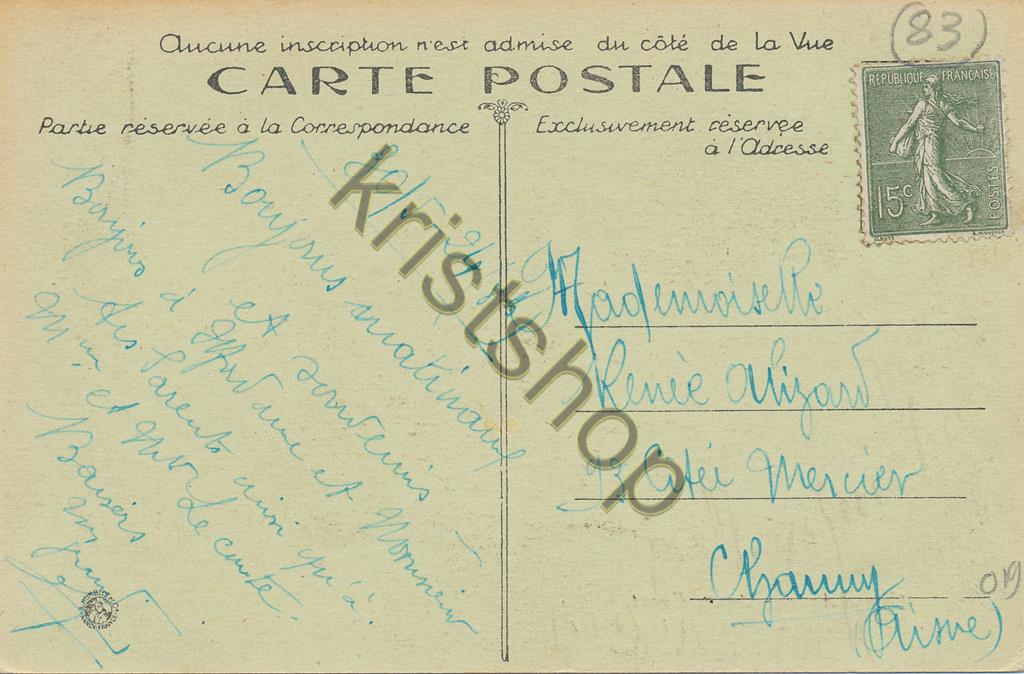 (83)
Aucune inscription n'est admise du côté de la Vue
CARTE POSTALE
Partie réservée à la Correspondance
Exclusivement réservée
à l'Adresse
REPUBLIQUE FRANÇAISE
15c
POSTES
Bonjours matinaux
et souvenirs
à Madame et Monsieur
Bonjour
Parents ainsi qu'à
et Le
Baisers
Mademoiselle
Renée Alizard
13 Citée Mercier
Chauny
(Aisne)
019
kristshop